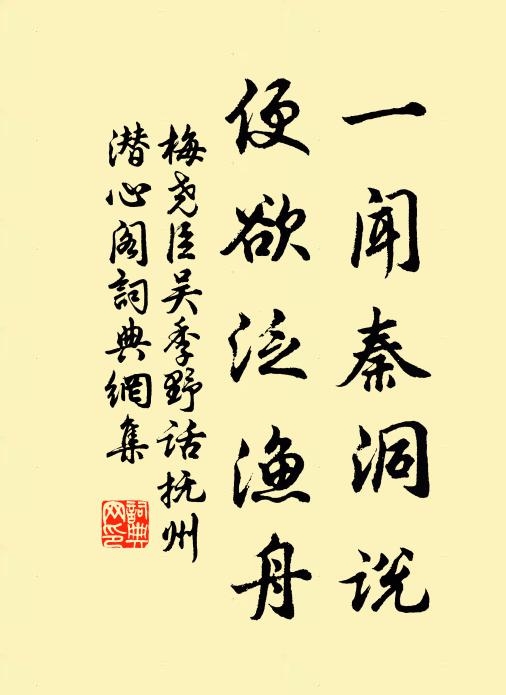 一闻秦洞说
便欲泛渔舟
梅尧臣吴季野话抚州
潜心阁詞典網集
詞典网印